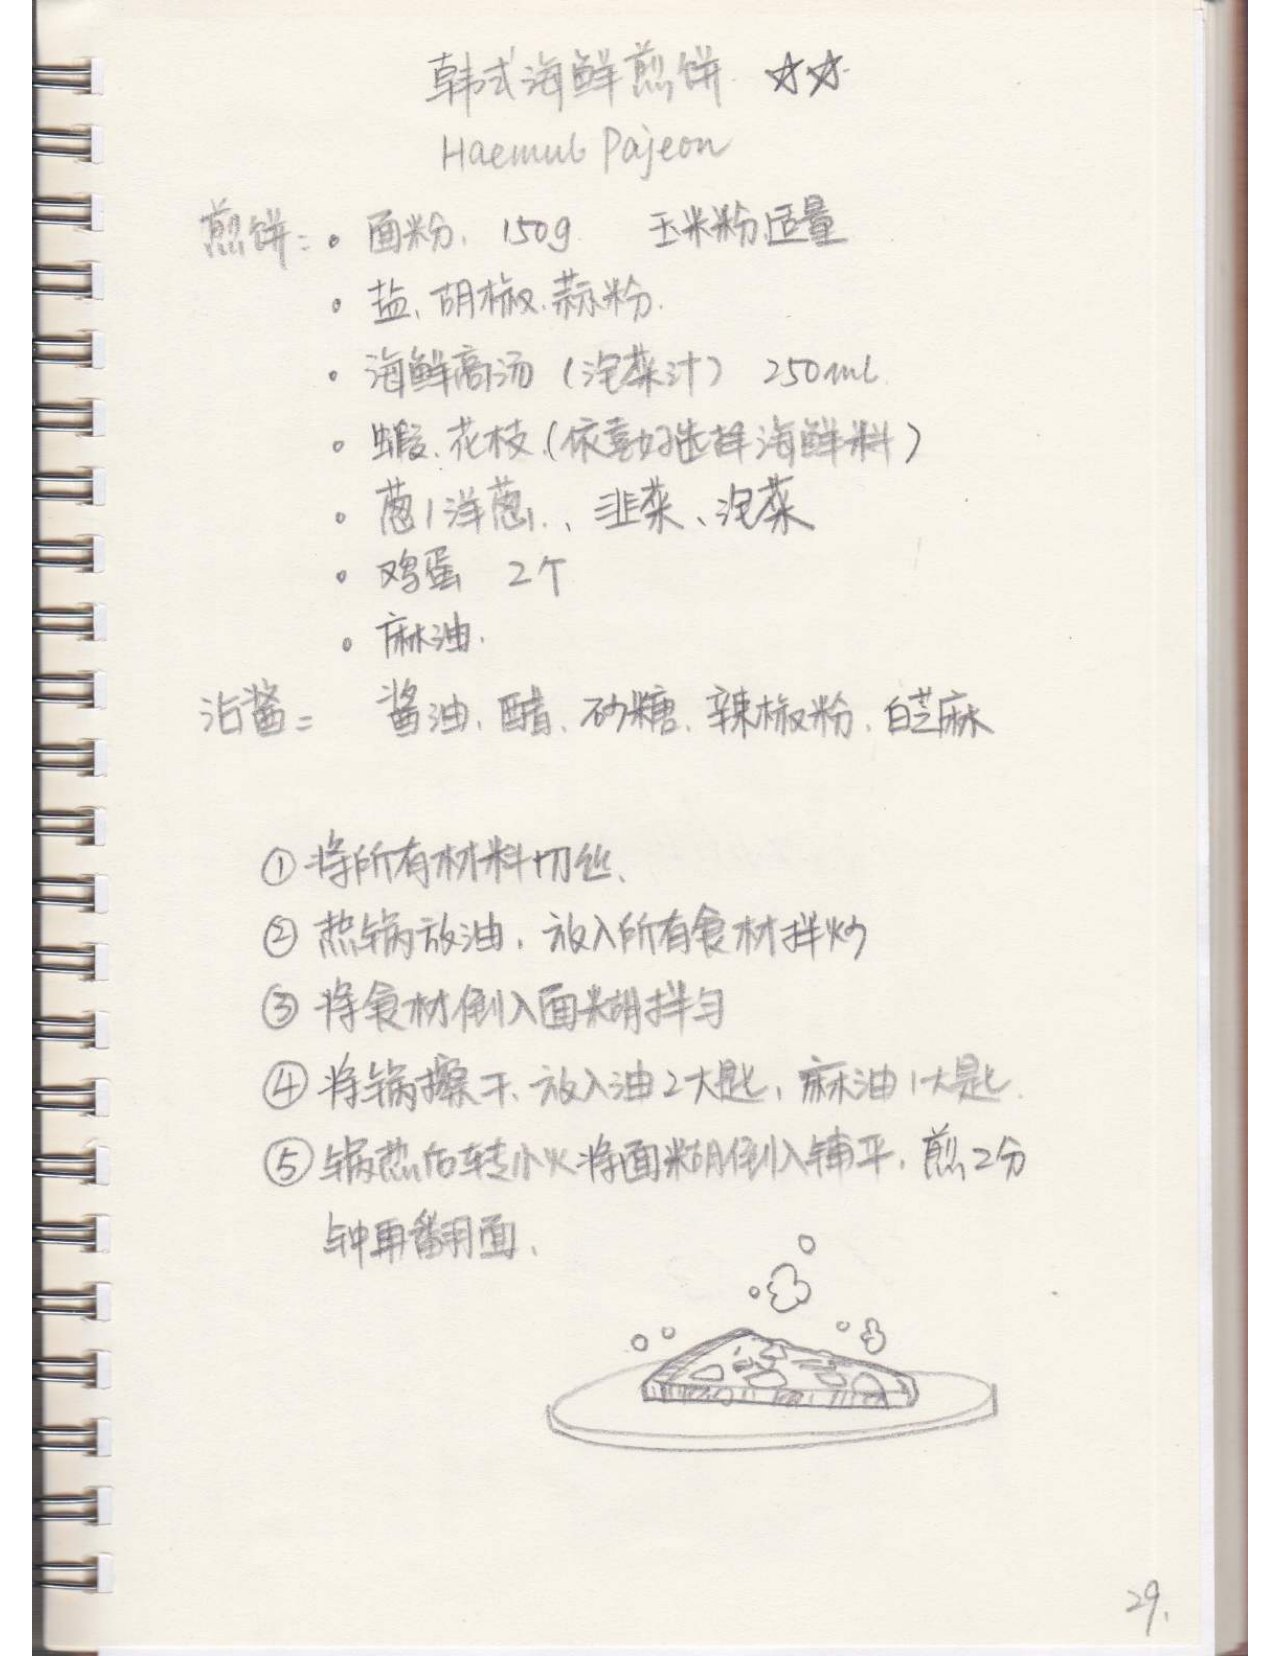 韩式海鲜煎饼 ☆☆
Haemul Pajeon
煎饼: 。面粉、150g 玉米粉适量
。盐、胡椒、蒜粉.
。海鲜高汤 (泡菜汁) 250ml
。蝦、花枝 (依喜好选择海鲜料)
。葱/洋葱、、韭菜、泡菜
。鸡蛋 2个
。麻油.
沾酱= 酱油、醋、砂糖、辣椒粉、白芝麻
① 将所有材料切丝、
② 热锅放油、放入所有食材拌炒
③ 将食材倒入面糊拌匀
④ 将锅擦干、放入油2大匙、麻油1大匙.
⑤ 锅热后转小火将面糊倒入铺平、煎2分
钟再翻面、
29.